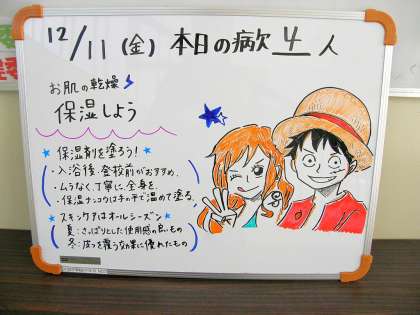 12/11(金) 本日の病欠 4人
お肌の乾燥
保湿しよう
★ 保湿剤を塗ろう! ★
・入浴後、登校前がおすすめ。
・ムラなく、丁寧に、全身を。
・保湿ナンコウは手の平で温めて塗る。
★ スキンケアはオールシーズン ★
夏:さっぱりとした使用感の良いもの
冬:皮フを覆う効果に優れたもの